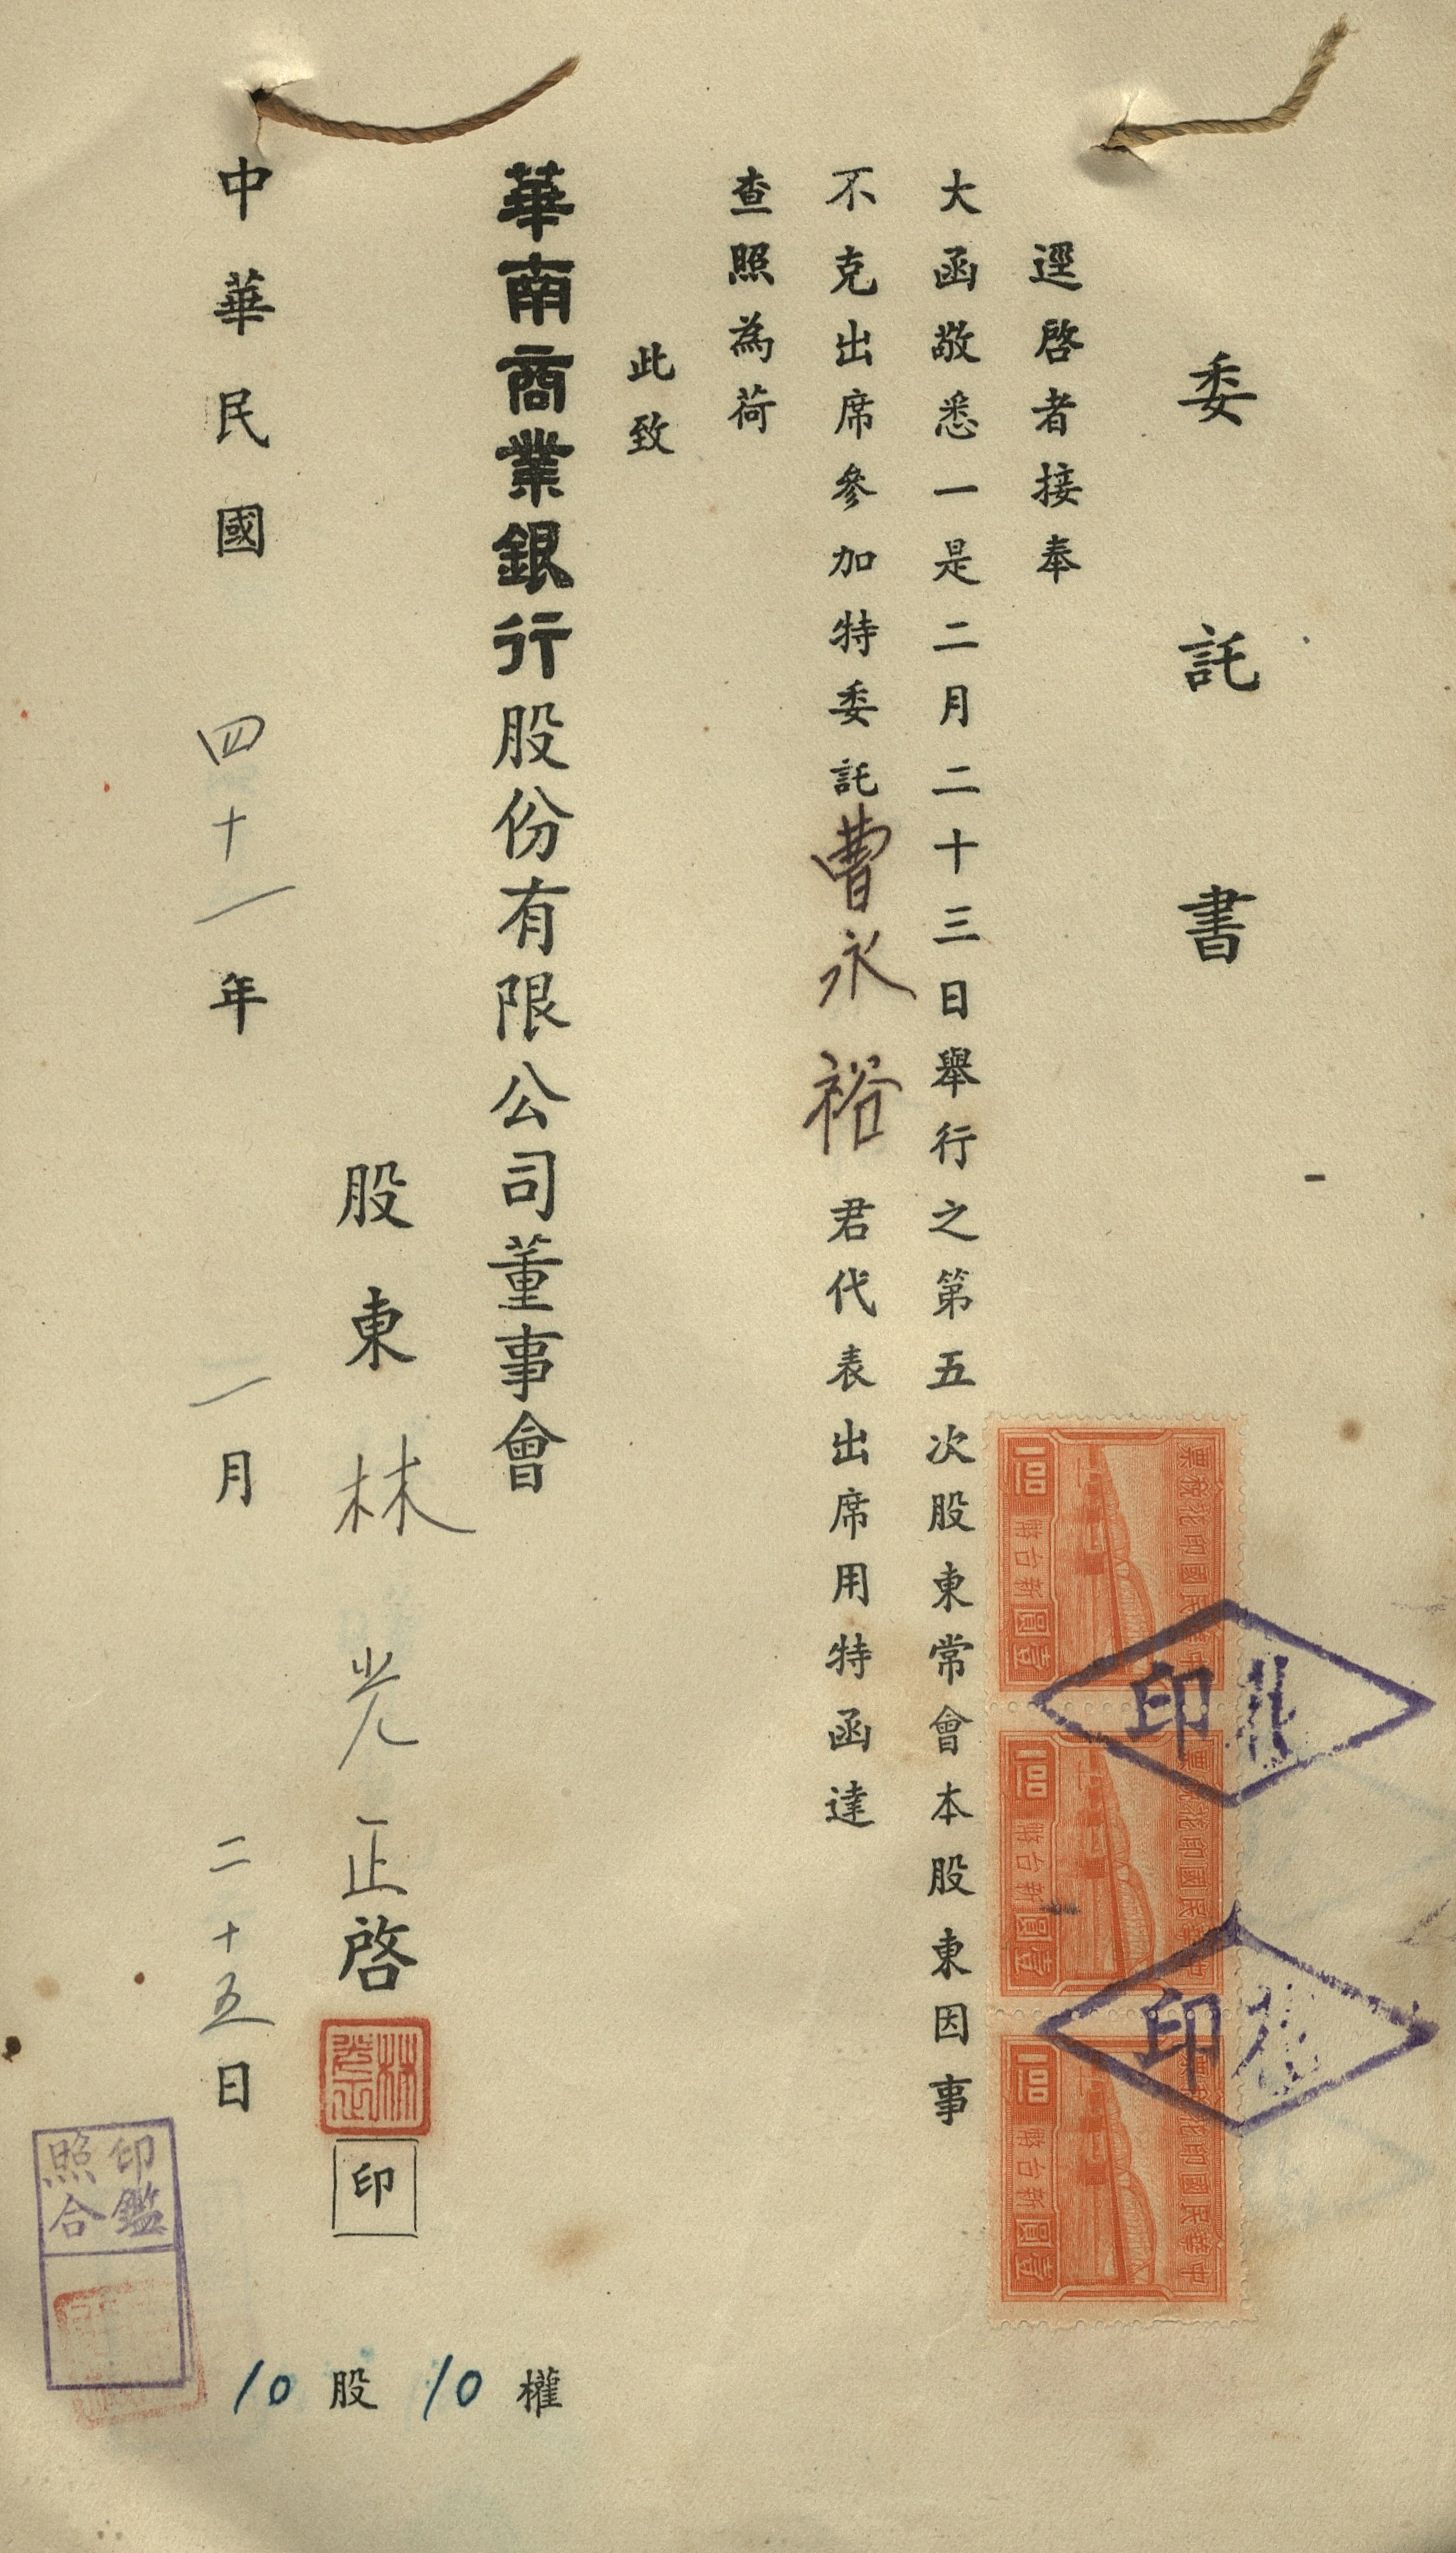 委託書
逕啓者接奉
大函敬悉一是二月二十三日舉行之第五次股東常會本股東因事
不克出席參加特委託曹永裕君代表出席用特函達
查照為荷
此致
華南商業銀行股份有限公司董事會
股東林光正啓
林光正
印
中華民國四十一年一月二十五日
10股10權
印鑑
照合
中華民國印花稅票
新台幣
壹圓
1.00
中華民國印花稅票
新台幣
壹圓
1.00
中華民國印花稅票
新台幣
壹圓
1.00
印
印